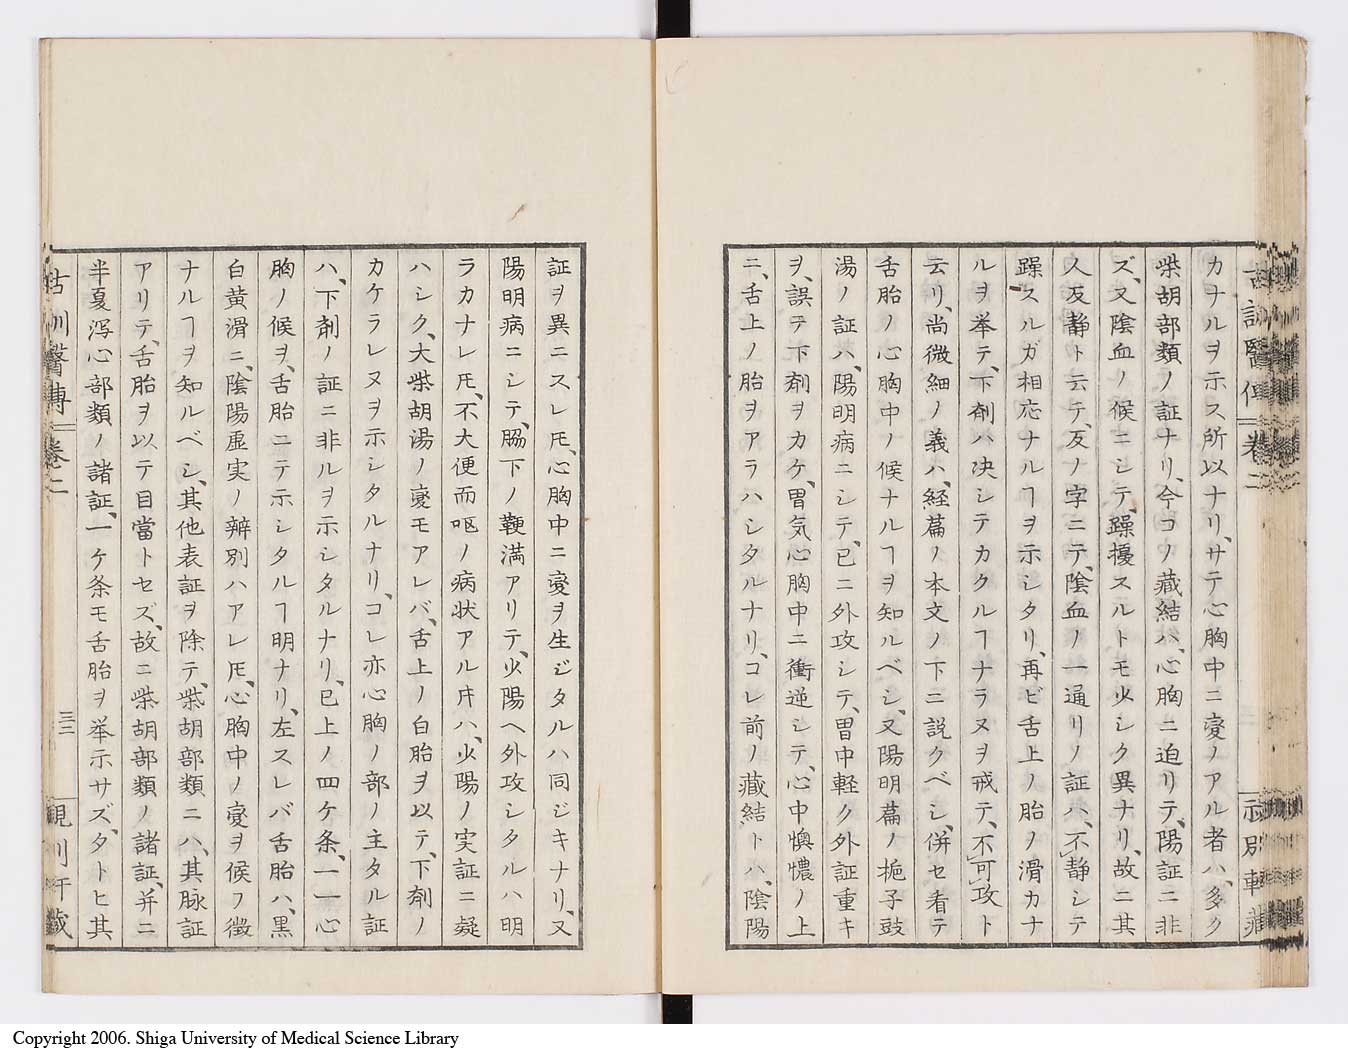 カナルヲ示ス所以ナリ、サテ心胸中ニ変ノアル者ハ、多ク
柴胡部類ノ証ナリ、今コノ蔵結ハ、心胸ニ迫リテ、陽証ニ非
ズ、又陰血ノ候ニシテ、躁擾スルトモ少シク異ナリ、故ニ其
人反静ト云テ、反ノ字ニテ、陰血ノ一通リノ証ハ、不静シテ
躁スルガ相応ナルヿヲ示シタリ、再ビ舌上ノ胎ノ滑カナ
ルヲ挙テ、下剤ハ决シテカクルヿナラヌヲ戒テ、不可攻ト
云リ、尚微細ノ義ハ、経篇ノ本文ノ下ニ説クベシ、併セ看テ
舌胎ノ心胸中ノ候ナルヿヲ知ルベシ、又陽明篇ノ梔子豉
湯ノ証ハ、陽明病ニシテ、已ニ外攻シテ、胃中軽ク外証重キ
ヲ、誤テ下剤ヲカケ、胃気心胸中ニ衝逆シテ、心中懊憹ノ上
ニ、舌上ノ胎ヲアラハシタルナリ、コレ前ノ蔵結トハ、陰陽
証ヲ異ニスレ𪜈、心胸中ニ変ヲ生ジタルハ同ジキナリ、又
陽明病ニシテ、脇下ノ鞕満アリテ、少陽ヘ外攻シタルハ明
ラカナレ𪜈、不大便而呕ノ病状アル片ハ、少陽ノ実証ニ疑
ハシク、大柴胡湯ノ変モアレバ、舌上ノ白胎ヲ以テ、下剤ノ
カケラレヌヲ示シタルナリ、コレ亦心胸ノ部ノ主タル証
ハ、下剤ノ証ニ非ルヲ示シタルナリ、已上ノ四ケ条、一一心
胸ノ候ヲ、舌胎ニテ示シタルヿ明ナリ、左スレバ舌胎ハ、黒
白黄滑ニ、陰陽虚実ノ辨別ハアレ𪜈、心胸中ノ変ヲ候フ徴
ナルヿヲ知ルベシ、其他表証ヲ除テ、柴胡部類ニハ、其脉証
アリテ、舌胎ヲ以テ目當トセズ、故ニ柴胡部類ノ諸証、并ニ
半夏瀉心部類ノ諸証、一ケ条モ舌胎ヲ挙示サズ、タトヒ其
古訓醫傳 卷二
三三
Copyright 2006. Shiga University of Medical Science Library